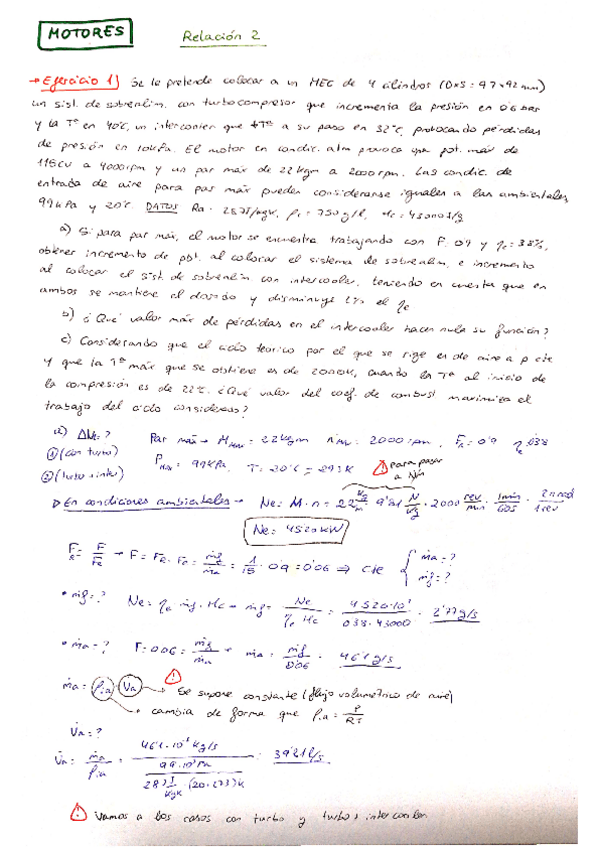 MOTORES
Relación 2
→ Ejercicio 1) Se le pretende colocar a un MEC de 4 cilindros (D×S: 97×92 mm)
un sist. de sobrealim. con turbocompresor que incrementa la presión en 0'6 bar
y la Tª en 40ºC, un intercooler que ↓Tª a su paso en 32ºC, provocando pérdidas
de presión en 10kPa. El motor en condic. atm provoca una pot. máx de
115CV a 4000rpm y un par máx de 22kgm a 2000rpm. Las condic. de
entrada de aire para par máx pueden considerarse iguales a las ambientales,
99kPa y 20ºC. DATOS Ra = 287J/kgK,
a) Si para par máx, el motor se encuentra trabajando con Fr 0'9 y ηe = 38%,
obtener incremento de pot. al colocar el sistema de sobrealim. e incremento
al colocar el sist. de sobrealim con intercooler, teniendo en cuenta que en
ambos se mantiene el dosado y disminuye el ηe
b) ¿Qué valor máx de pérdidas en el intercooler hacen nula su función?
c) Considerando que el ciclo teorico por el que se rige es de aire a p cte
y que la Tª máx que se obtiene es de 2000K, cuando la Tª al inicio de
la compresión es de 22ºC. ¿Qué valor del coef. de combust maximiza el
trabajo del ciclo considerado?
a) ΔNe = ? Par máx → Mmax = 22kgm 2000rpm, Fr = 0'9 ηe 0'38
① (con turbo) 99kPa. T = 20ºC = 293K ⚠ para pasar
② (turbo + inter) a
▷ En condiciones ambientales → Ne = M·n = 22 kg m · 9'81 N/kg · 2000 rev/min · 1min/60s · 2π rad/1rev
Ne = 45'20kW
Fr = F/Fe → F = Fr · Fe = ṁf/ṁa = 1/15 · 0'9 = 0'06 ⇒ cte { ṁa = ? ṁf = ?
• ṁf = ? Ne = ηe · ṁf · Hc → ṁf = Ne/(ηe Hc) = 45'20·10³/(0'38·43000) = 2'77g/s
• ṁa = ? F = 0'06 = ṁf/ṁa → ṁa = ṁf/0'06 = 46'1 g/s
ṁa = ρa V̇a → ⚠ Se supone constante (flujo volumétrico de aire)
→ cambia de forma que ρa = P/RT
V̇a = ?
V̇a = ṁa/ρa = 46'1·10⁻³ kg/s / (99·10³ Pa / 287 J/kgK · (20+273)K) = 39'21 l/s
⚠ Vamos a los casos con turbo y turbo + intercooler